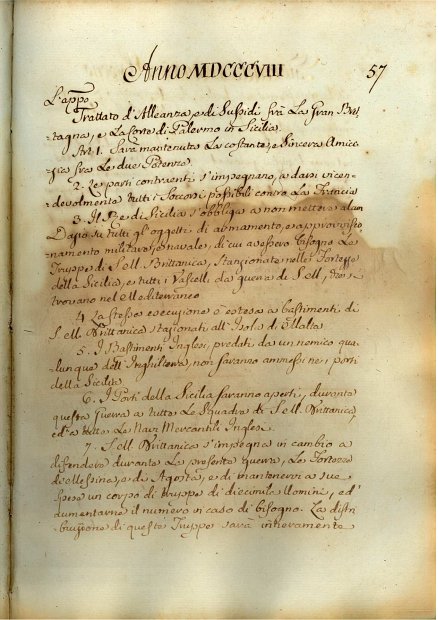 Anno MDCCCVIII 57
L'app.o
Trattato d'Alleanza, e di Sussidi frà La Gran Bret
-tagna, e La Corte di Palermo in Sicilia.
Art 1. Sarà mantenuta La costante, e Sincera Amici
-zia fra Le due Potenze.
2. Le parti contraenti s'impegnano, a darsi vicen-
-devolmente tutti i Soccorsi possibili contro La Francia
3. Il Re di Sicilia s'obbliga a non mettere alcun
Dazio su tutti gl'oggetti di armamento, e approvisio
namento militare, e navale, di cui avessero bisogno Le
Truppe di S. M. Brittanica, stanzionate nelle Fortezze
della Sicilia, e tutti i Vascelli da guerra di S. M, che si
trovano nel Mediterraneo
4. La stessa esecuzione è estesa a bastimenti di
S. M. Brittanica stazionati all'Isola di Malta.
5. I Bastimenti Inglesi, predati da un nemico qua
lunque dell'Inghilterra, non saranno ammessi nei porti
della Sicilia.
6. I Porti della Sicilia saranno aperti, durante
questa guerra a tutte Le Squadre di S. M. Brittanica,
ed a tutte Le Navi Mercantili Inglesi.
7. S. M. Brittanica s'impegna in cambio a
difendere durante La presente guerra, Le Fortezze
di Messina, e di Agosta, e di mantenervi a sue
spese un corpo di truppe di diecimila Uomini, ed'
aumentarne il numero in caso di bisogno. La distri
buzione di queste Truppe sarà intieramente